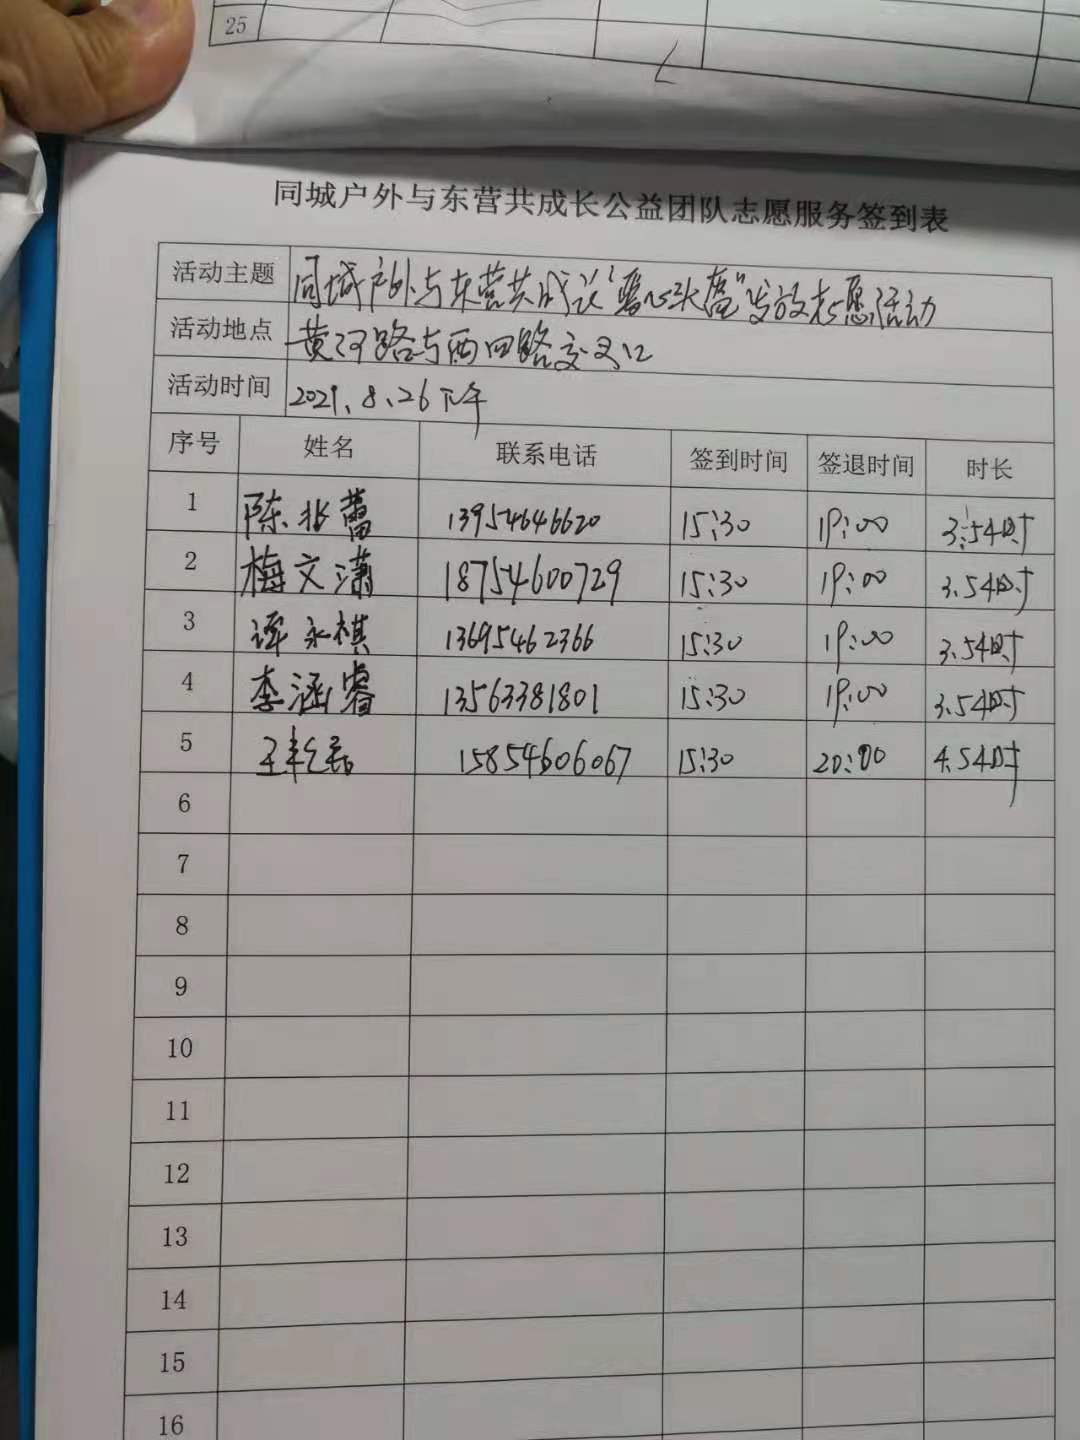 25
同城户外与东营共成长公益团队志愿服务签到表
活动主题 同城户外与东营共成长"暖心头盔"发放志愿活动
活动地点 黄河路与西四路交叉口
活动时间 2021.8.26下午
序号 姓名 联系电话 签到时间 签退时间 时长
1 陈 蕾 13954646620 15:30 19:00 3.5小时
2 梅文潇 18754600729 15:30 19:00 3.5小时
3 谭永棋 13695462366 15:30 19:00 3.5小时
4 李涵睿 13563381801 15:30 19:00 3.5小时
5 王 15854606067 15:30 20:00 4.5小时
6
7
8
9
10
11
12
13
14
15
16